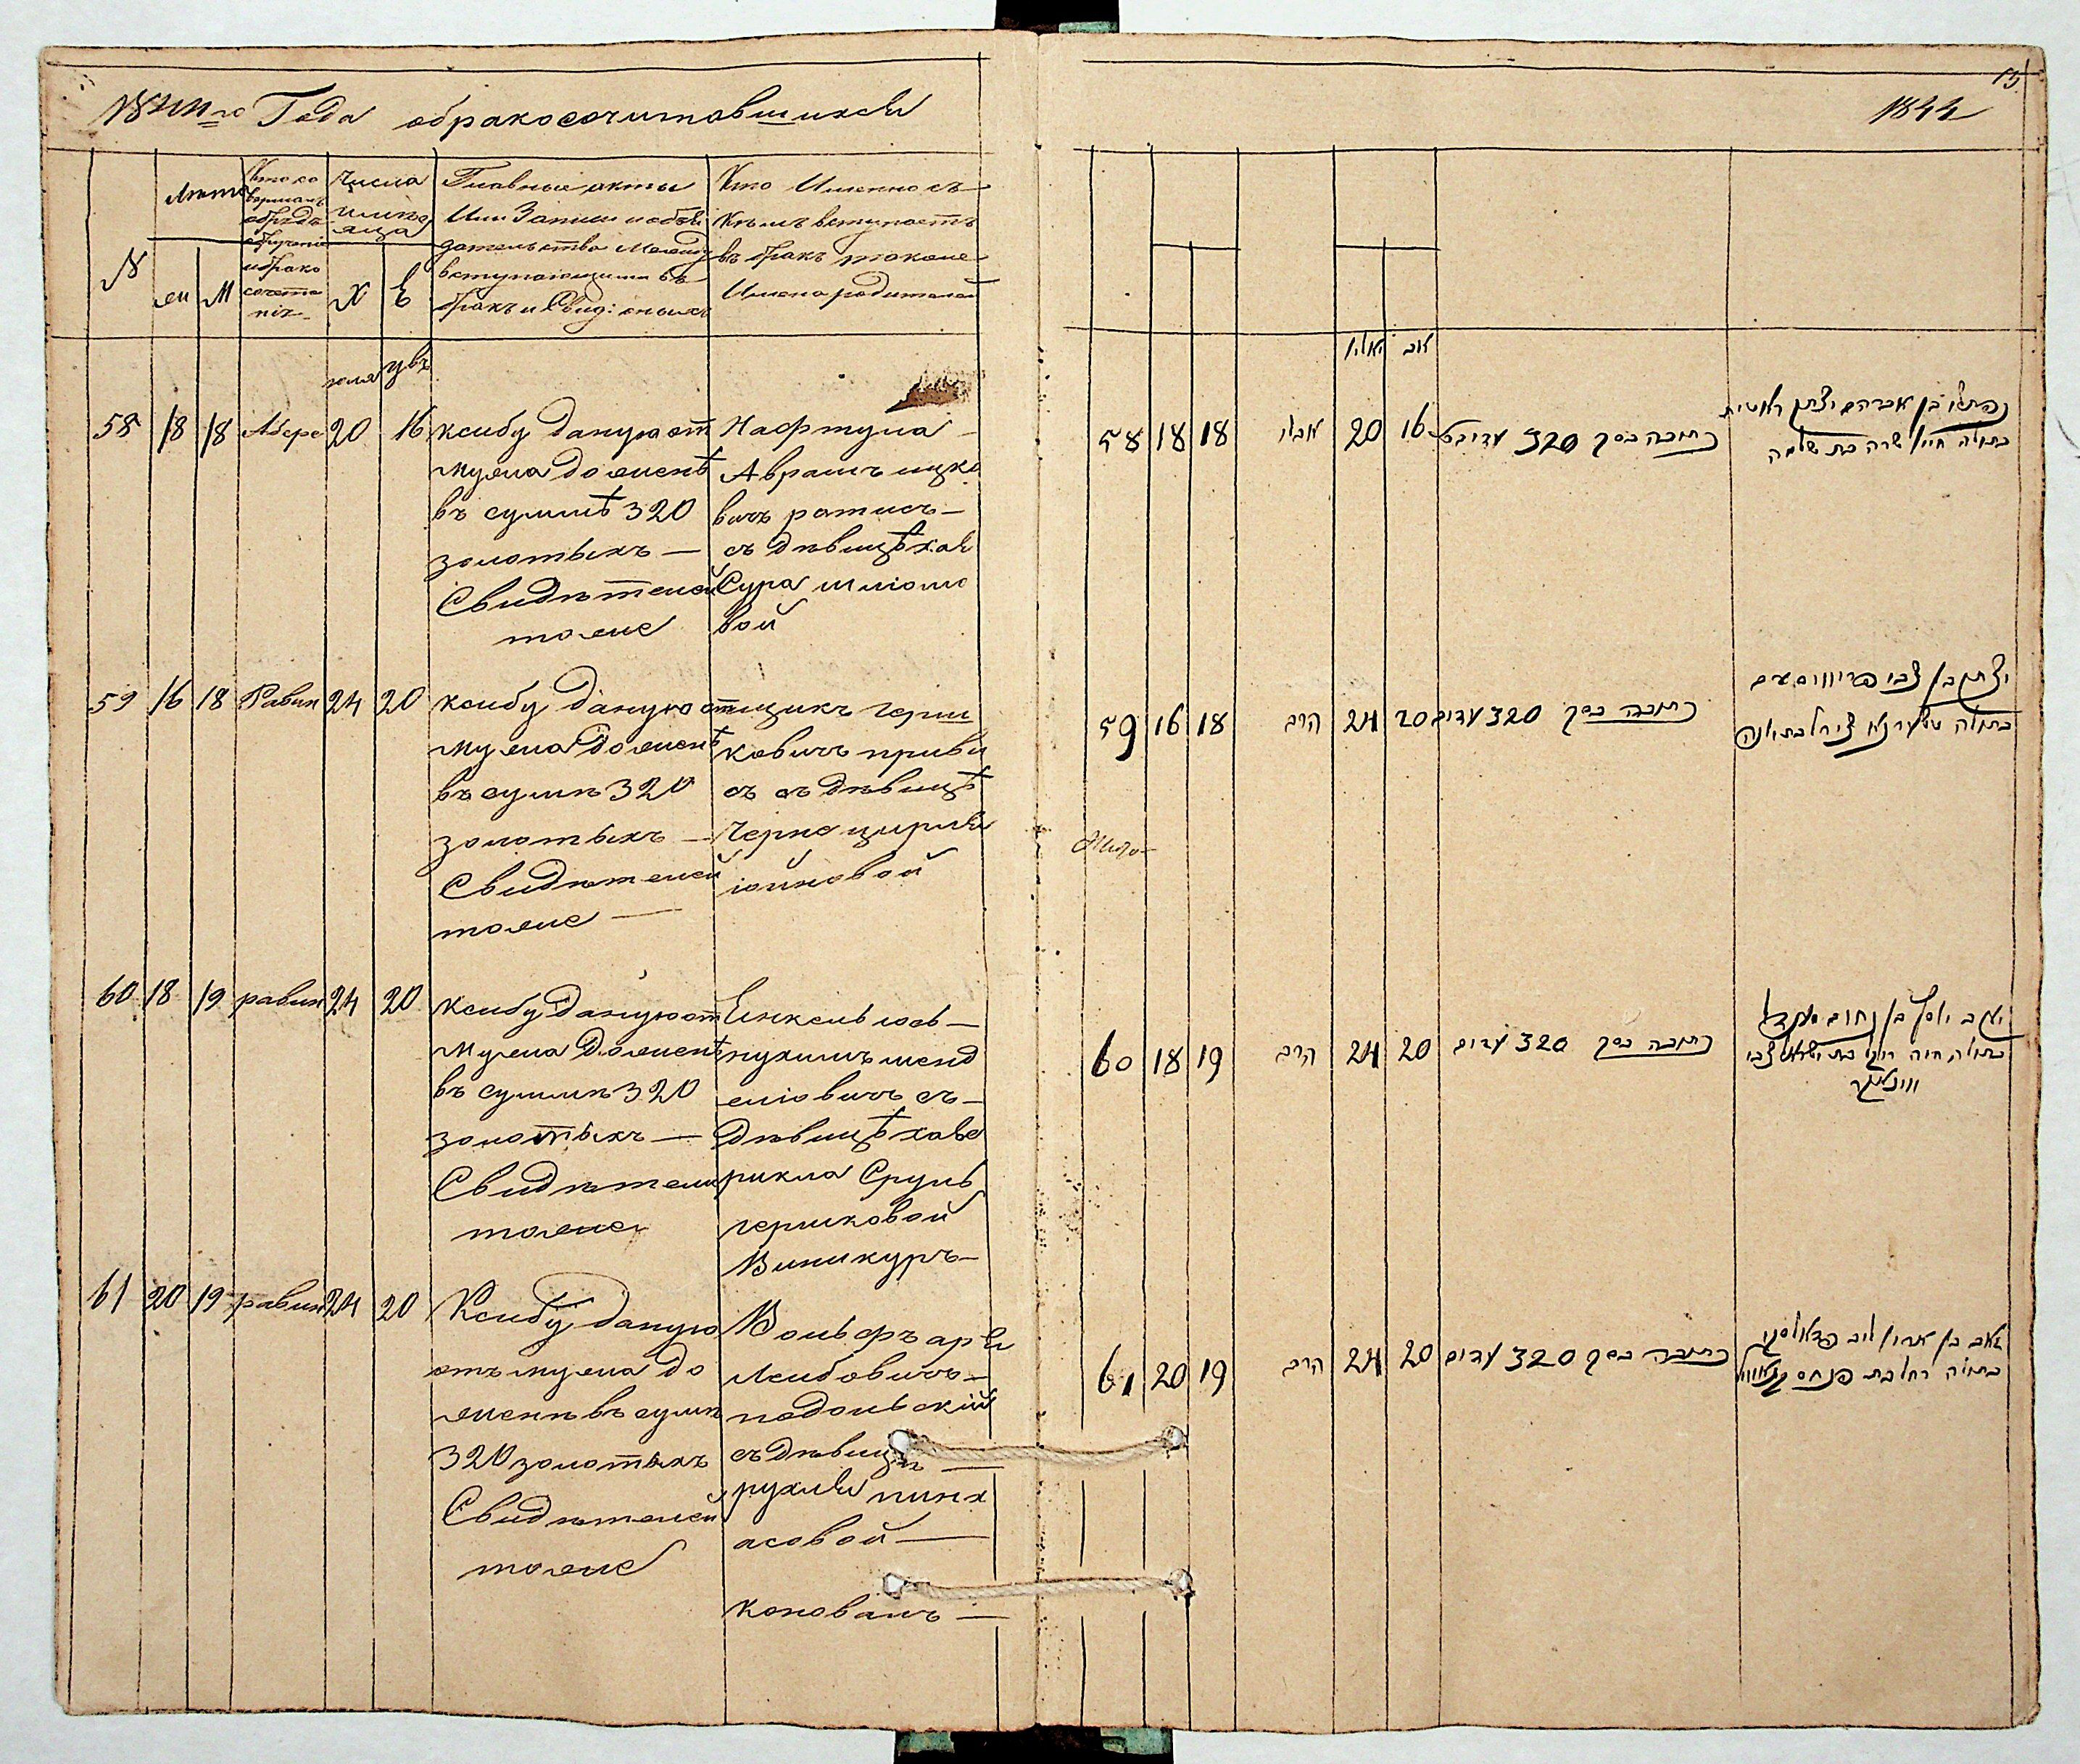 1844го Года обракосочитавшихся
№
Лѣта
же М
Кто со
вершалъ
обрядъ
обрученiе
ибрако
сочета
нiя
Числа
имѣся
яца
Х Е
Главные акты
Или Записи иобяз
дательства Между
вступающими въ
бракъ и Свид: оныхъ
Кто Именно съ
Кѣмъ вступаетъ
въ бракъ также
Имена родителей
58 18 18 20 16
ксибу даную от
мужа до женѣ
въ суммѣ 320
золотыхъ —
Свидѣтелей
тоже
Нафтула —
Аврамъ ицко
вичъ —
съ дѣвицѣ хая
Сура шлiомо
вой
59 16 18 Равин 24 20
ксибу даную от
мужа до женѣ
въ сумѣ 320
золотыхъ —
Свидѣтелей
тоже —
ицикъ герш
ковичъ
съ дѣвицѣ
Черне цирля
iойновой
60 18 19 равин 24 20
ксибу даную от
мужа до женѣ
въ суммѣ 320
золотыхъ —
Свидѣтели
тоже
Енкель юсь —
нухимъ менд
елiовичъ съ —
дѣвицѣ хае
рикла Сруль
гершковой
Виникуръ —
61 20 19 равин 24 20
Ксибу даную
отъ мужа до
жены въ сумѣ
320 золотыхъ
Свидѣтелей
тоже
Вольфъ аря
Лейбовичъ —
подольскiй
съ дѣвицѣ —
рухля пинх
асовой —
Коновалъ —
1844
יאליו אב
58 18 18 20 16
כתובה בסך 320
נפתלי בן אברהם יצחק
בתולה חייא שרה בת שלמה
59 16 18 הרב 24 20
כתובה בסך 320 עדים
יצחק בן צבי
בתולה
60 18 19 הרב 24 20
כתובה בסך 320 עדים
יעקב יוסף בן נחום
בתולה חיה ריקל בת ישראל צבי
61 20 19 הרב 24 20
כתובה בסך 320 עדים
זאב בן אהרן ליב
בתולה רחל בת פנחס